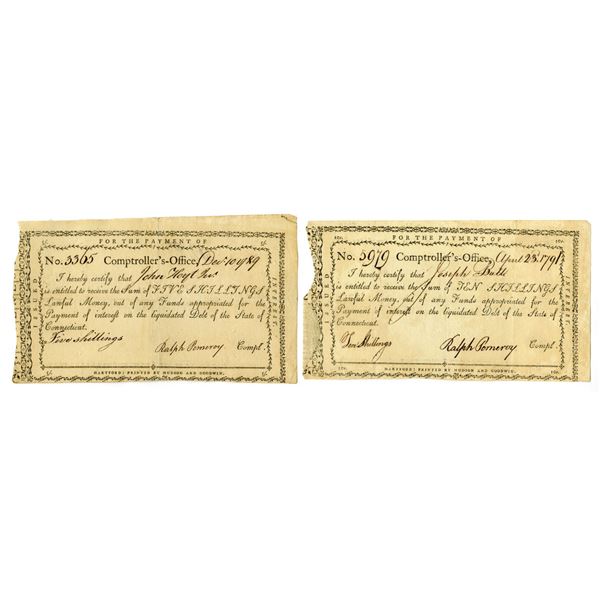 FOR THE PAYMENT OF
5/.
ISSUED
INTEREST.
No. 3365 Comptroller's-Office, Decr 10 1789
I hereby certify that John Hoyt Junr
is entitled to receive the Sum of FIVE SHILLINGS
Lawful Money, out of any Funds appropriated for the
Payment of interest on the liquidated Debt of the State of
Connecticut.
Five shillings
Ralph Pomeroy Compt.
5/. HARTFORD: PRINTED BY HUDSON AND GOODWIN. 5/.
10s. FOR THE PAYMENT OF 10s.
ISSUED
INTEREST.
No. 5979 Comptroller's-Office, April 23d 1791
I hereby certify that Joseph Bull
is entitled to receive the Sum of TEN SHILLINGS
Lawful Money, out of any Funds appropriated for the
Payment of interest on the liquidated Debt of the State of
Connecticut.
Ten Shillings
Ralph Pomeroy Compt.
HARTFORD: PRINTED BY HUDSON AND GOODWIN. 10s.